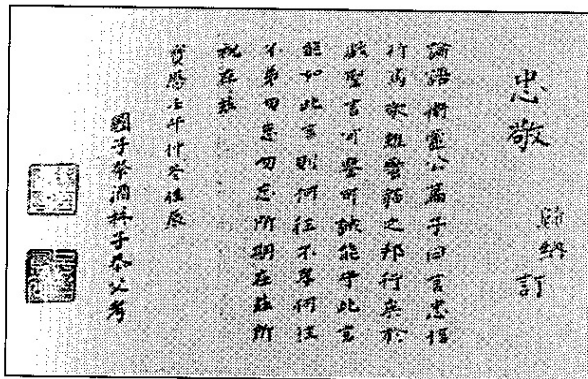 忠敬
訂
論語衛靈公篇子曰言忠信
行篤敬雖蠻貊之邦行矣於
戲聖言可可能守此言
能如此言則何往不何往
不勿怠勿忘所期在茲所
祝在茲
寶曆壬午仲冬佳辰
國子祭酒林子恭父考